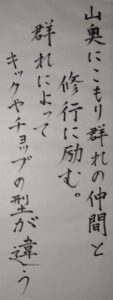 山奥にこもり群れの仲間と
修行に励む。
群れによって
キックやチョップの型が違う